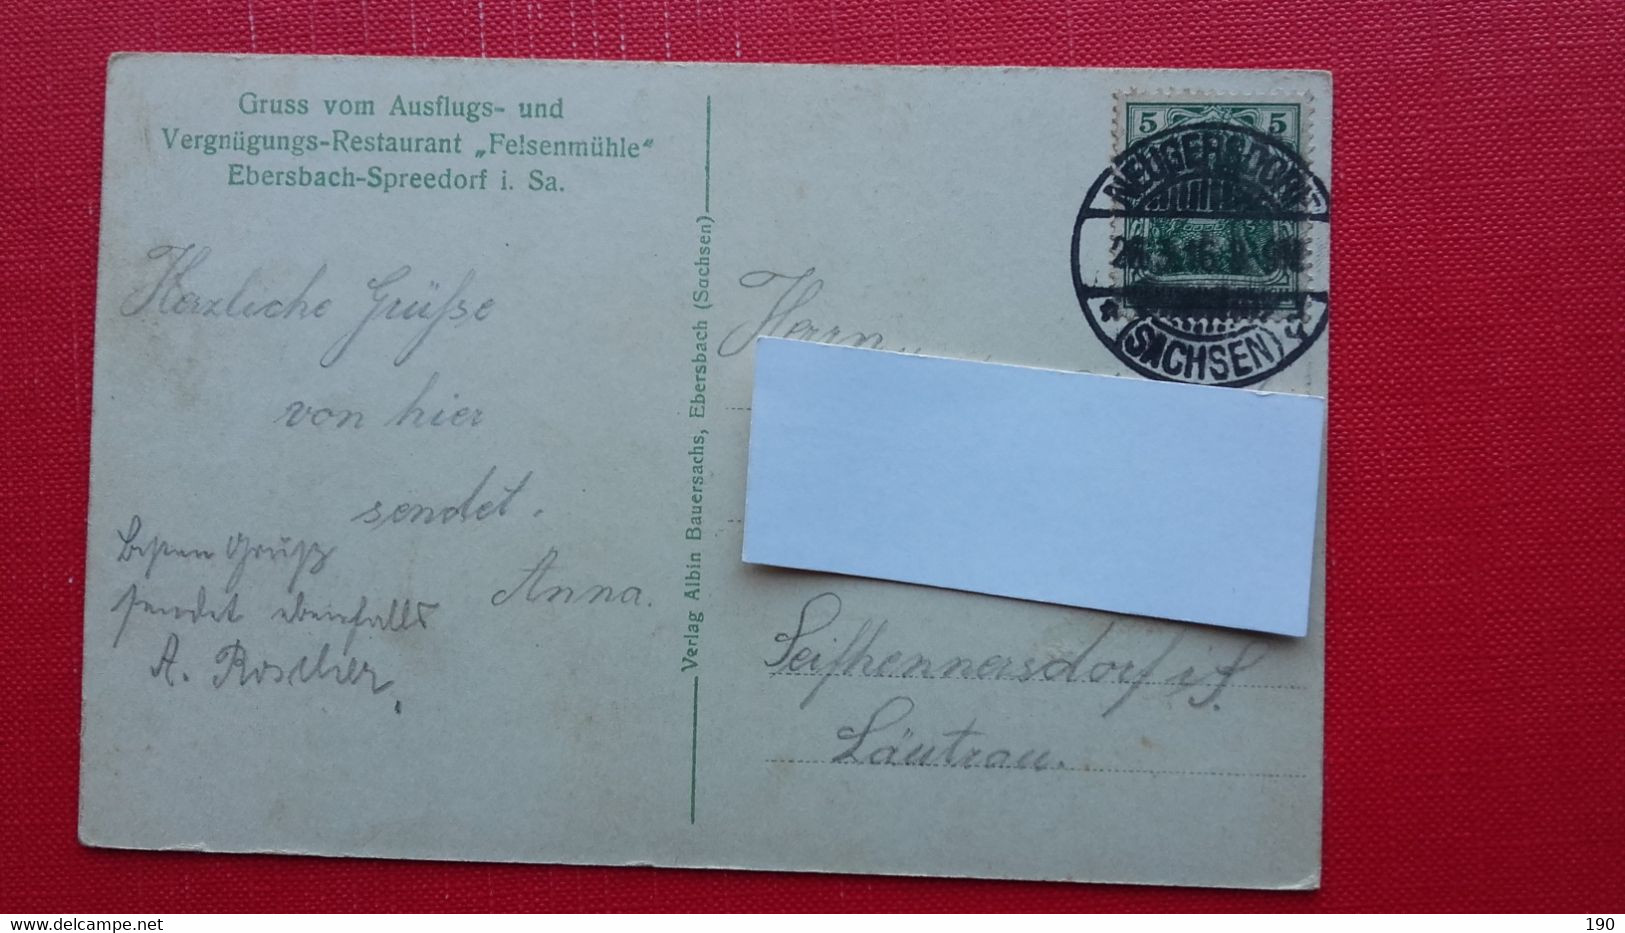 Gruss vom Ausflugs- und
Vergnügungs-Restaurant „Felsenmühle“
Ebersbach-Spreedorf i. Sa.
Herzliche Grüße
von hier
sendet.
Anna.
Besten Gruß
sendet ebenfalls
A. Roscher.
Verlag Albin Bauersachs, Ebersbach (Sachsen)
5 5
NEUGERSDORF
(SACHSEN)
Herrn
Seifhennersdorf i/S.
Läutrau.
www.delcampe.net
190